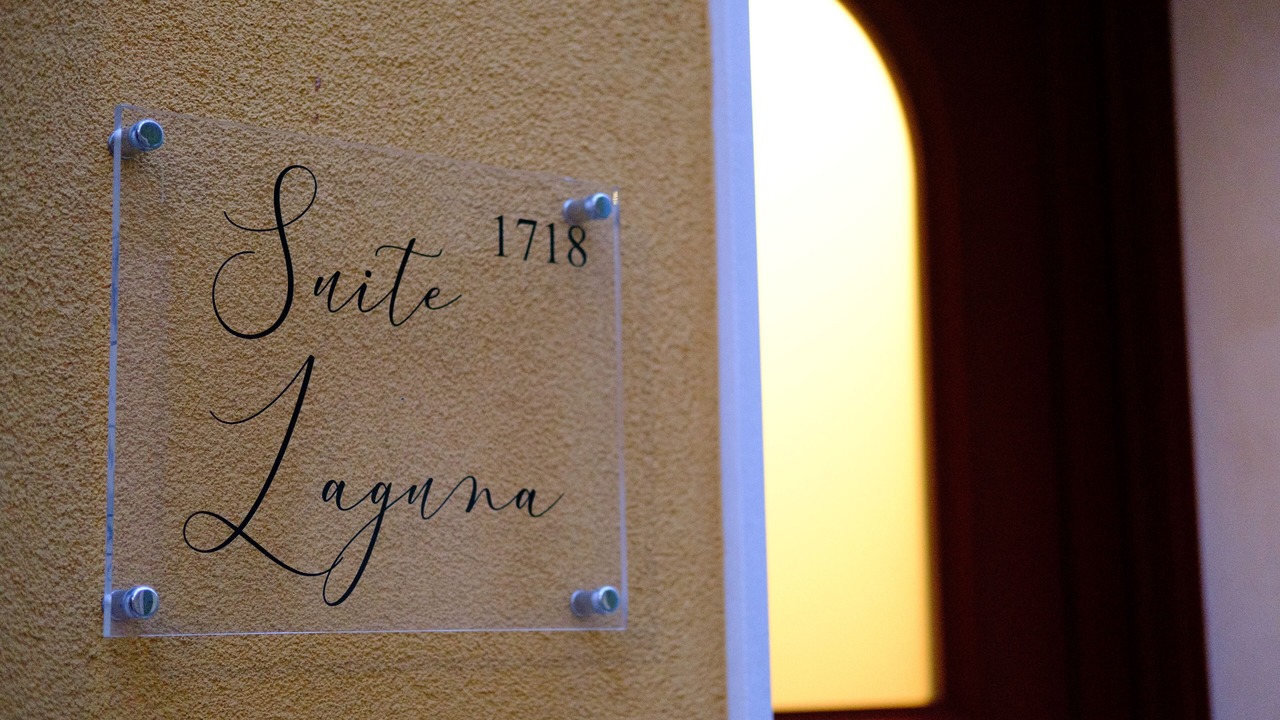 Suite
1718
Laguna